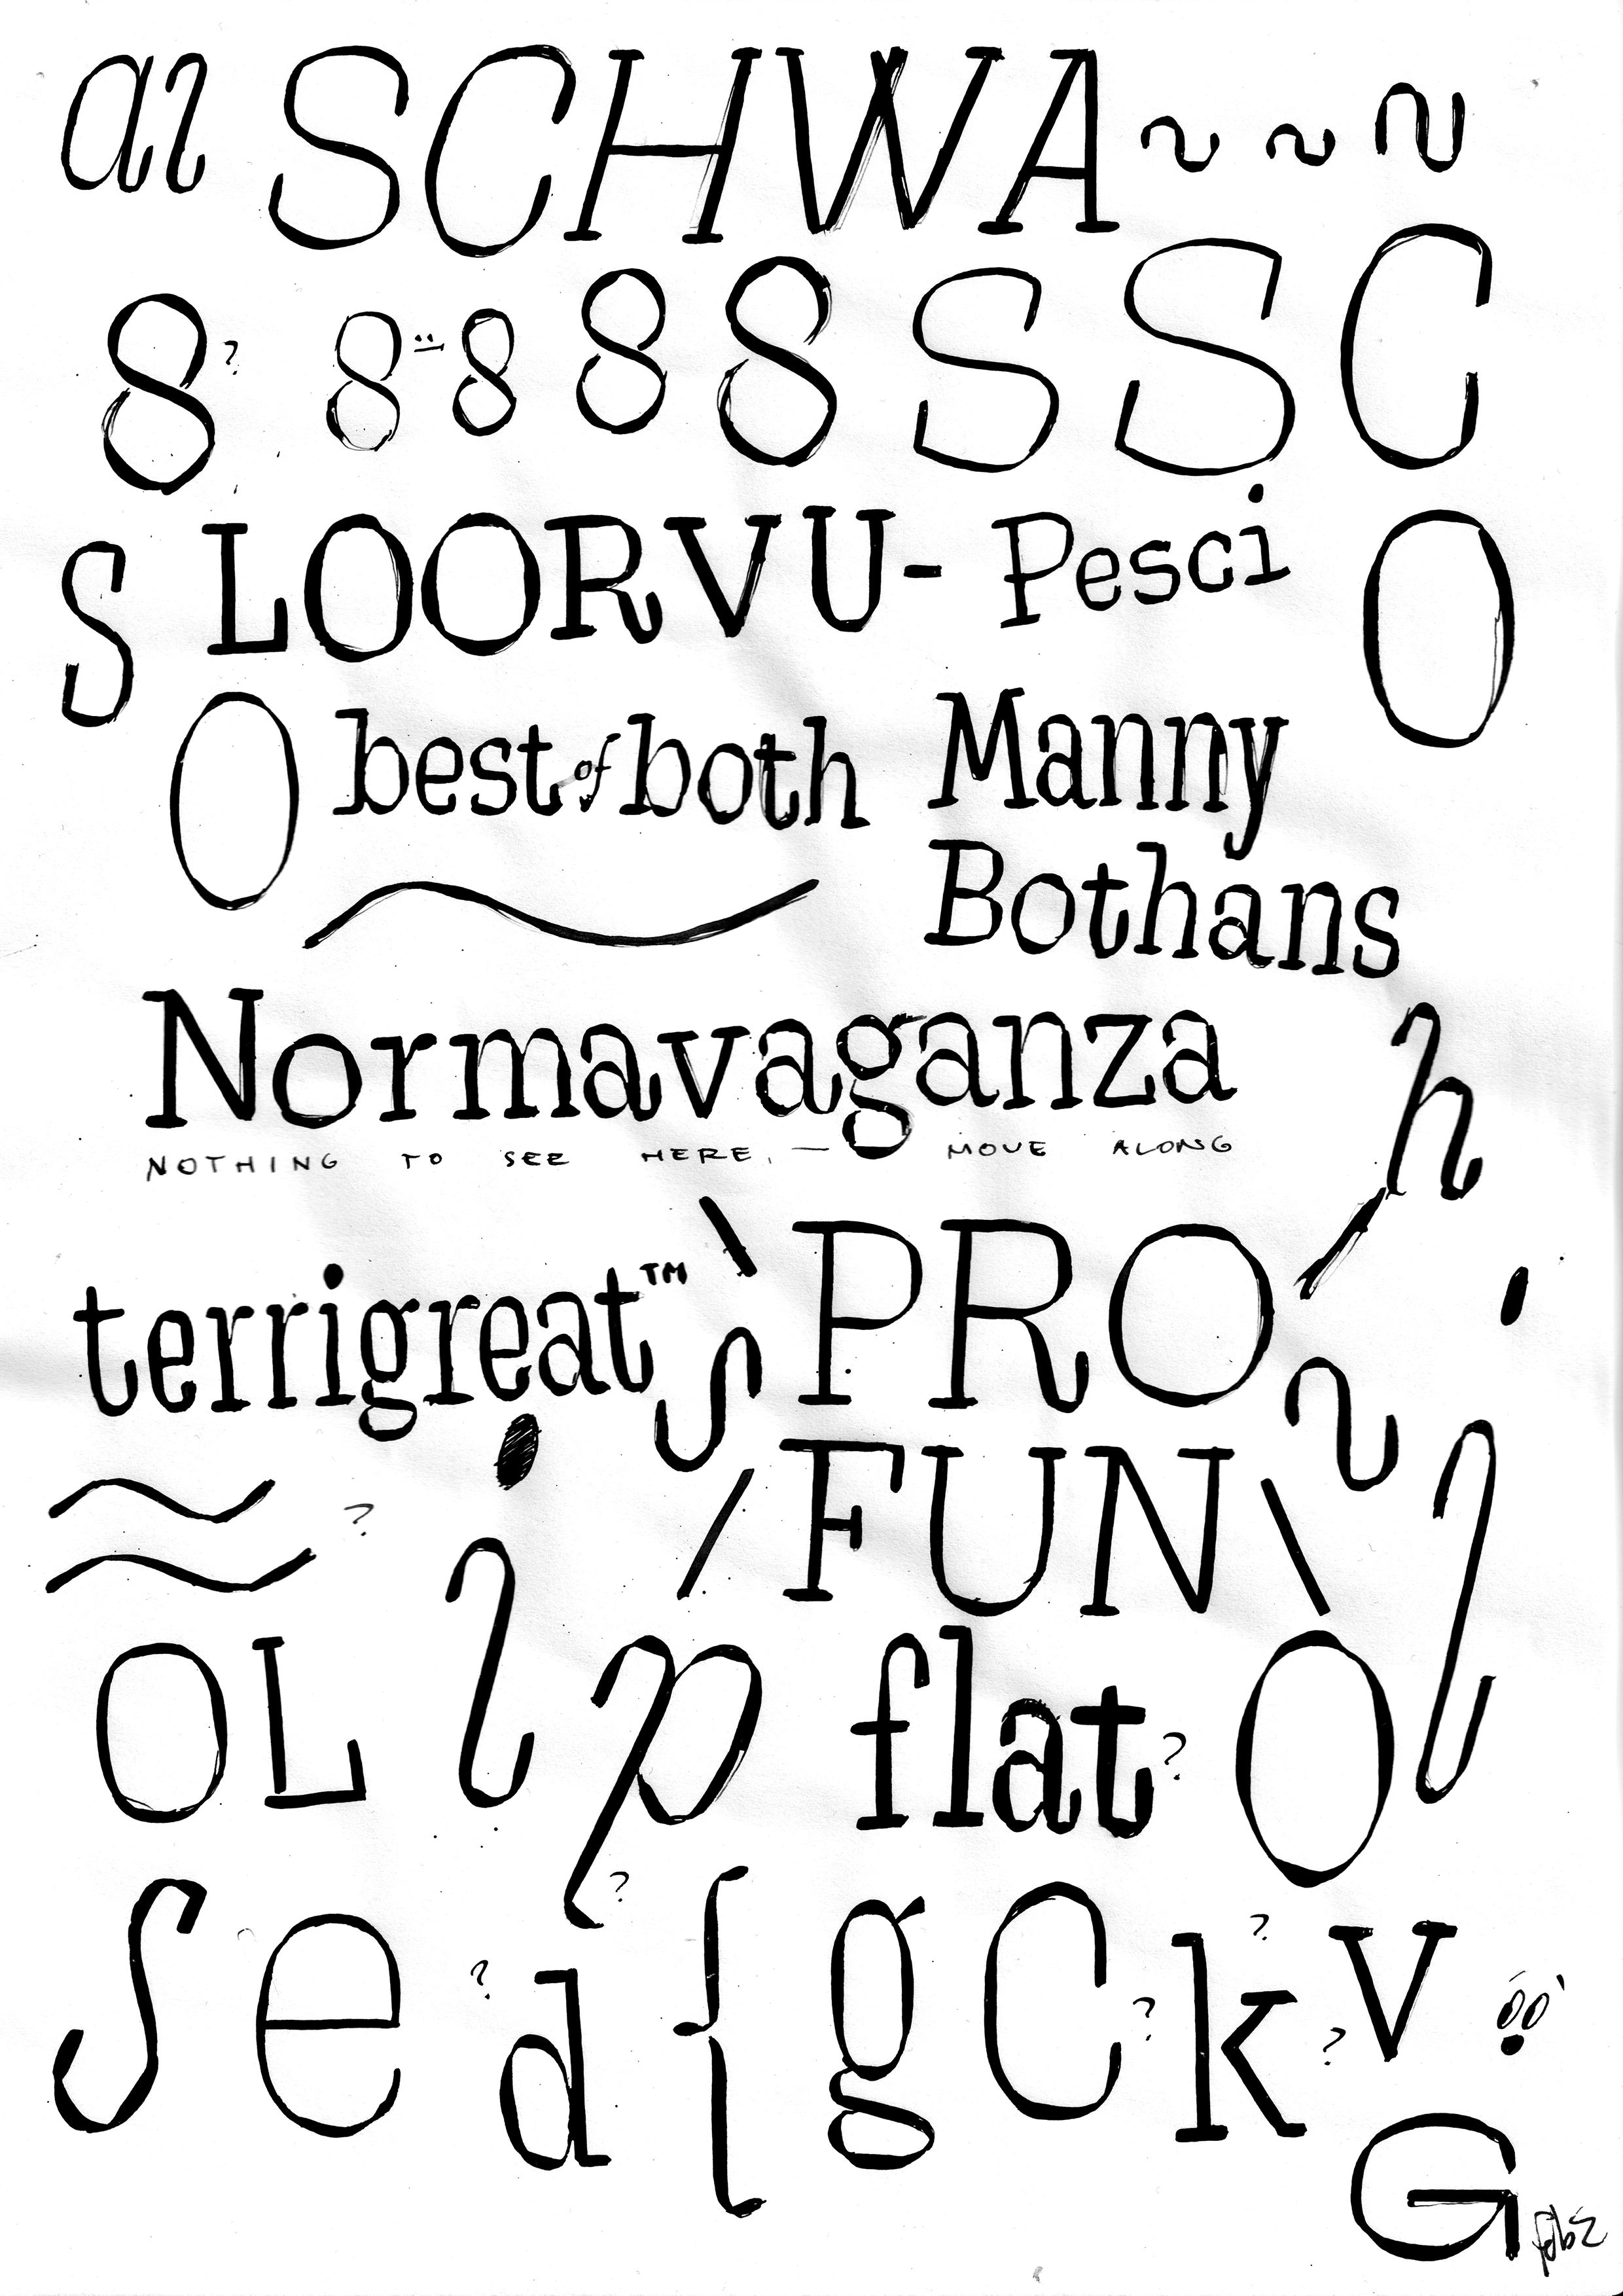 a SCHWA ~ ~ ~
8? 8 8 8 8 S S C
S LOORVU- Pesci O
O best of both Manny
Bothans
Normavaganza
NOTHING TO SEE HERE, — MOVE ALONG
h
terrigreat™ \ PRO /
/ FUN \
?
OL p flat? O
?
S e ? d { g C ? k ? ? v
G